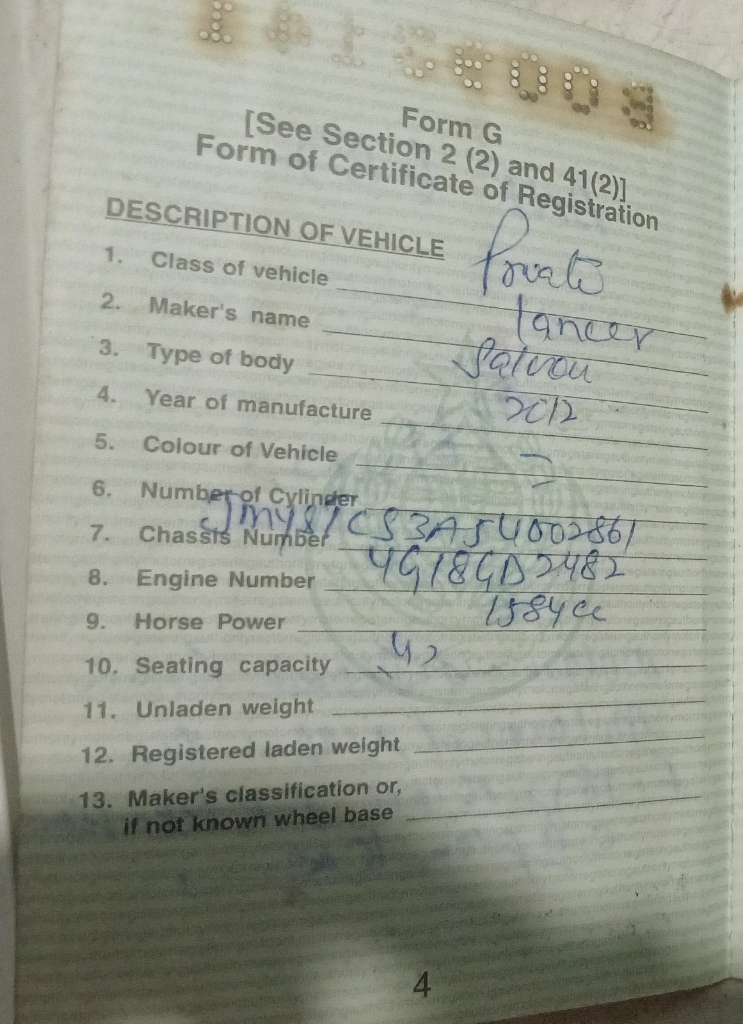 Form G
[See Section 2 (2) and 41(2)]
Form of Certificate of Registration
DESCRIPTION OF VEHICLE
1. Class of vehicle Private
2. Maker's name Lancer
3. Type of body Saloon
4. Year of manufacture 2012
5. Colour of Vehicle
6. Number of Cylinder
7. Chassis Number
8. Engine Number 4G18GD2482
9. Horse Power 1584cc
10. Seating capacity
11. Unladen weight
12. Registered laden weight
13. Maker's classification or,
if not known wheel base
4